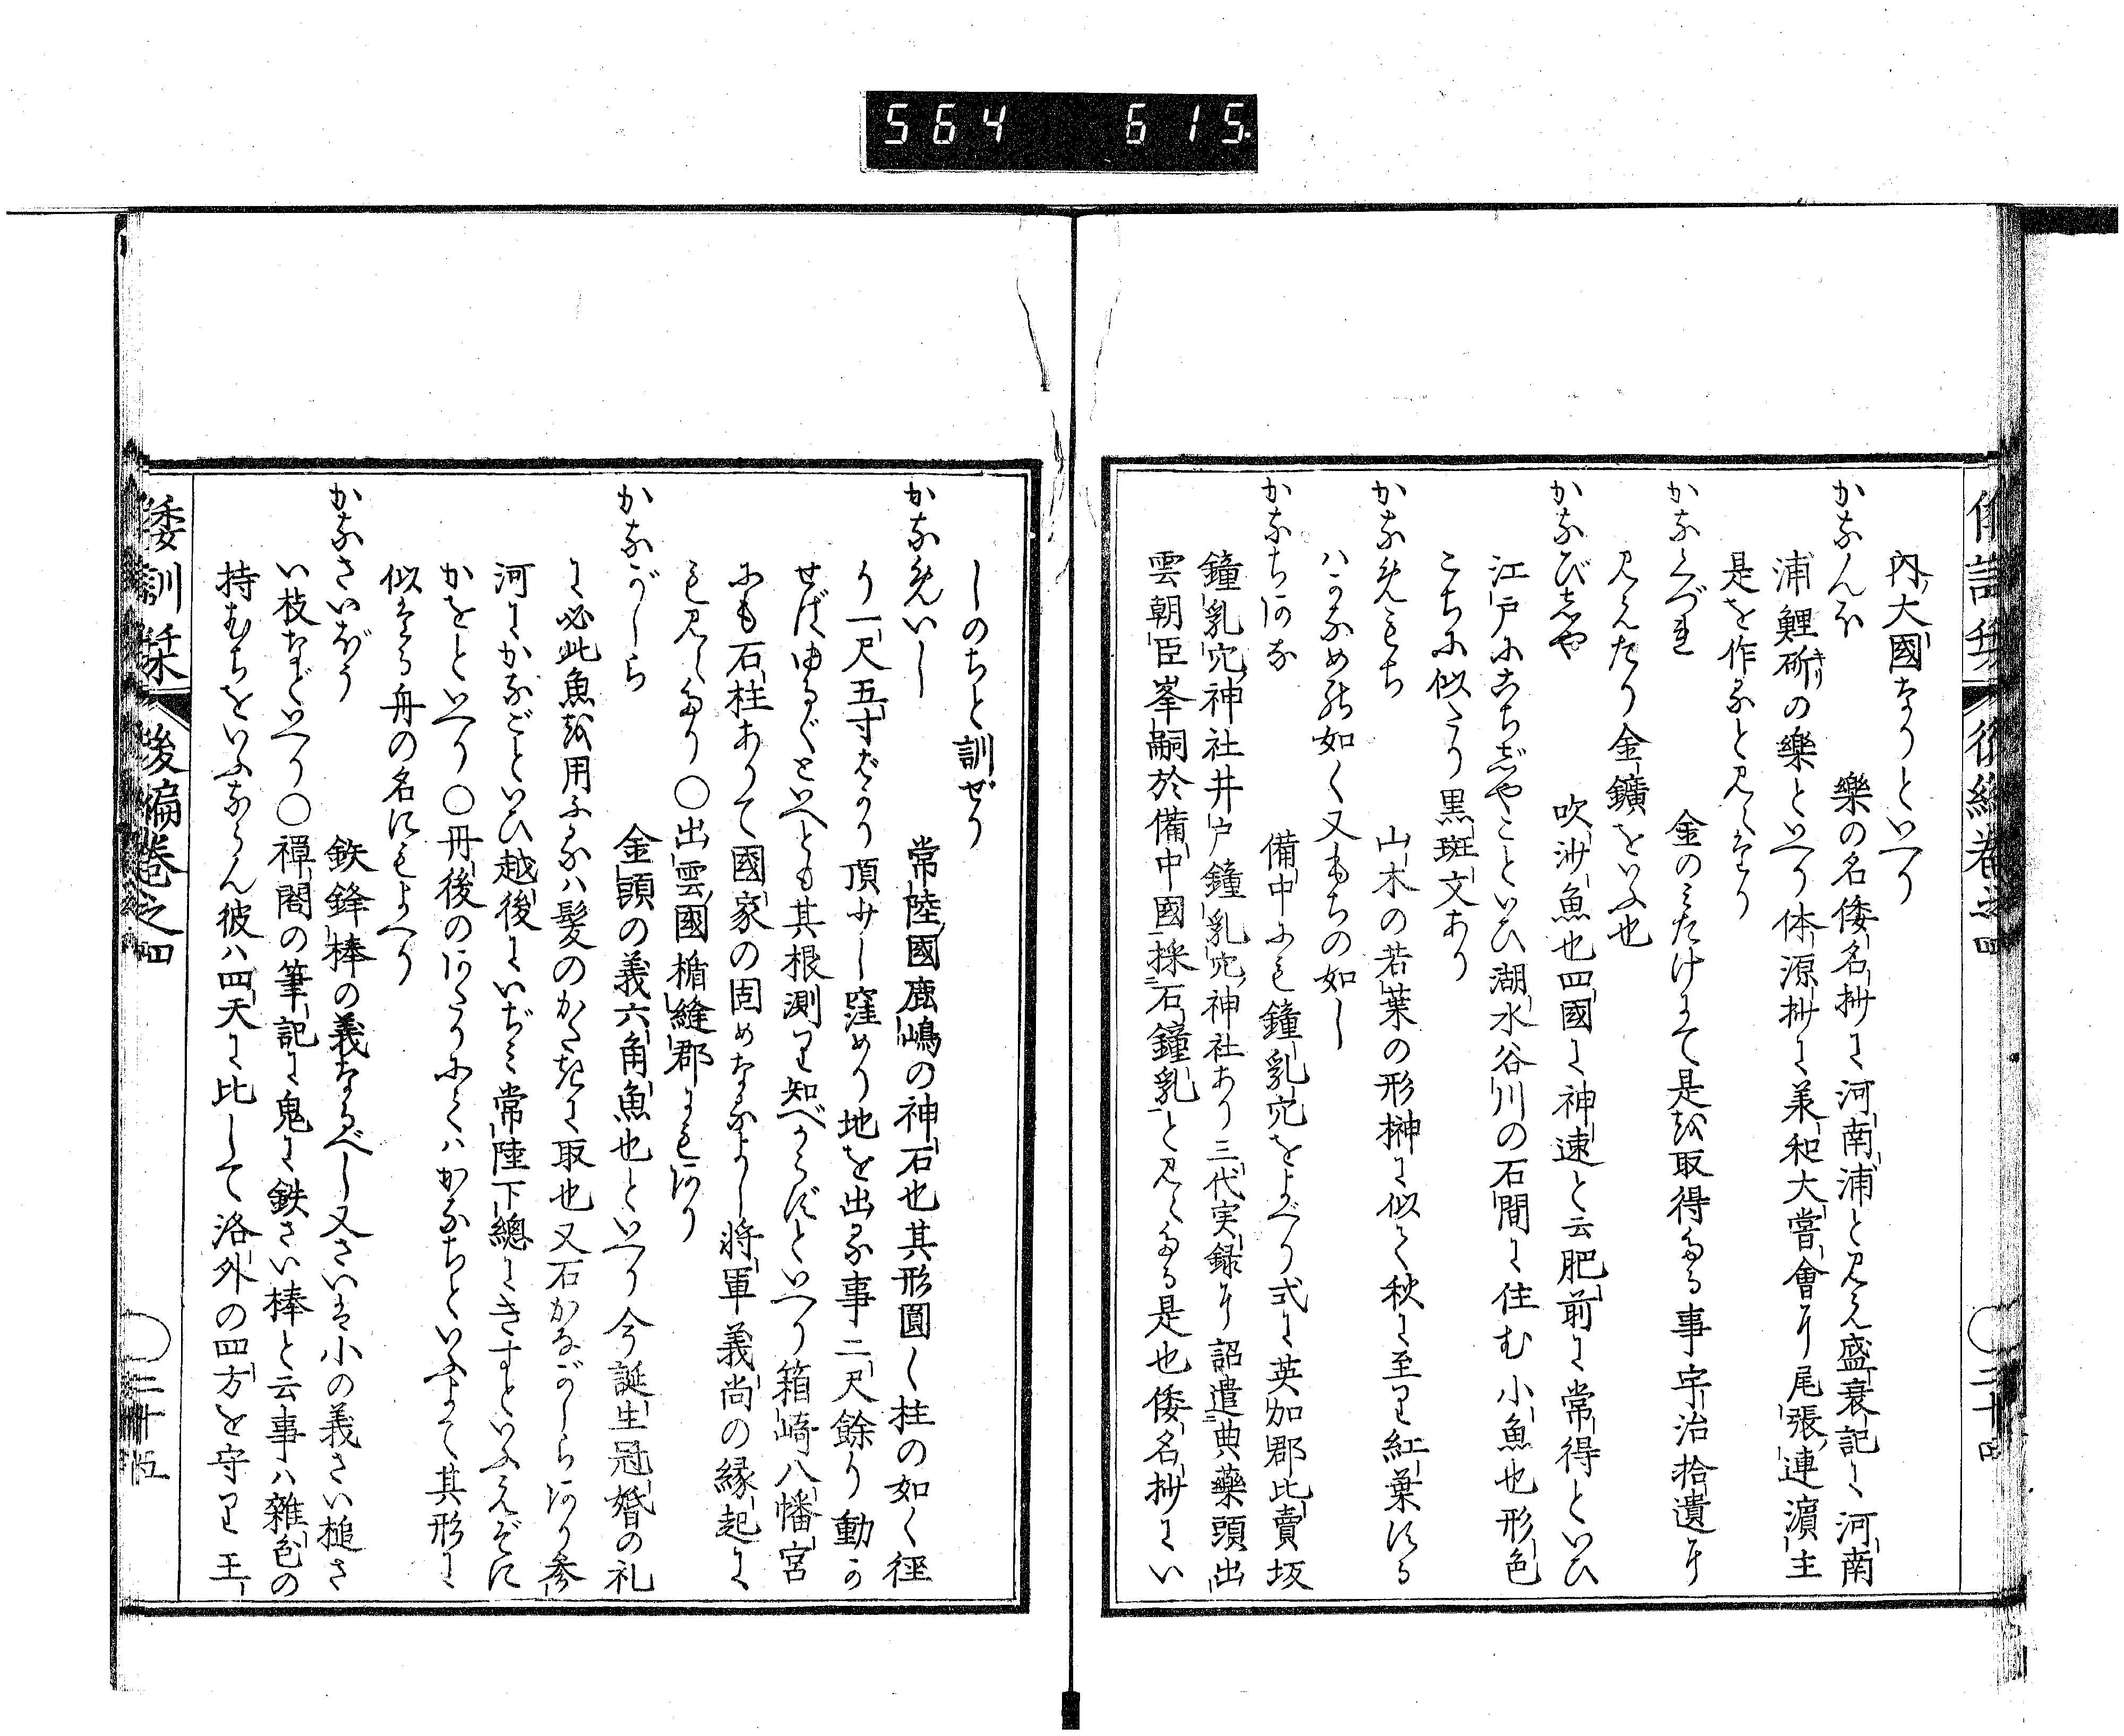 564 615.
倭訓栞 後編巻之四 〇三十四
内大國なりといへり
かなんほ 樂の名倭名抄に河南浦と見え盛衰記に河南
浦鯉斫の樂といへり体源抄に美和大嘗會に尾張連濱主
是を作るよと見えたり
かなくづれ 金のみたけにて是を取得たる事宇治拾遺に
見えたり金鑛をいふ也
かなびしや 吹沙魚也四國に神速と云肥前に常得といひ
江戸にこちびやこといひ湖水谷川の石間に住む小魚也形色
こちに似たり黒斑文あり
かなめもち 山木の若葉の形榊に似て秋に至り紅葉する
ハかなめの如く又もちの如し
かなちあな 備中にも鐘乳穴をよべり式に英加郡比賣坂
鐘乳穴神社井戸鐘乳穴神社あり三代実録に詔遣典藥頭出
雲朝臣峯嗣於備中國採石鐘乳と見えたる是也倭名抄にい
しのちと訓ぜり
かなめいし 常陸國鹿嶋の神石也其形圓く柱の如く徑
り一尺五寸ばかり頂少し窪めり地を出る事二尺餘り動か
せばゆるぐといへとも其根測り知べからずといへり箱崎八幡宮
にも石柱ありて國家の固めなるよし將軍義尚の縁起に
も見えたり〇出雲國楯縫郡にもあり
かながしら 金頭の義六角魚也といへり今誕生冠婚の礼
に必此魚を用ふるハ髪のかたきに取也又石かながしらあり参
河にかなごといひ越後にいぢみ常陸下總にきすといふえぞに
かをといへり〇丹後のあたりにてハかなちといふよて其形に
似たる舟の名にもよべり
かなさいぼう 鉄鋒棒の義なるべし又さいは小の義さい槌さ
い枝などいへり〇禪閤の筆記に鬼に鉄さい棒と云事ハ雜色の
持むちをいふならん彼ハ四天に比して洛外の四方を守り王
倭訓栞 後編巻之四 〇三十五